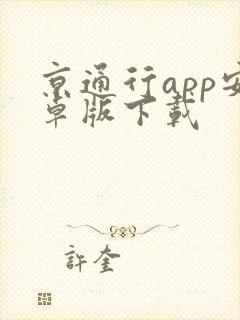 京通行app安
卓版下载
許奎